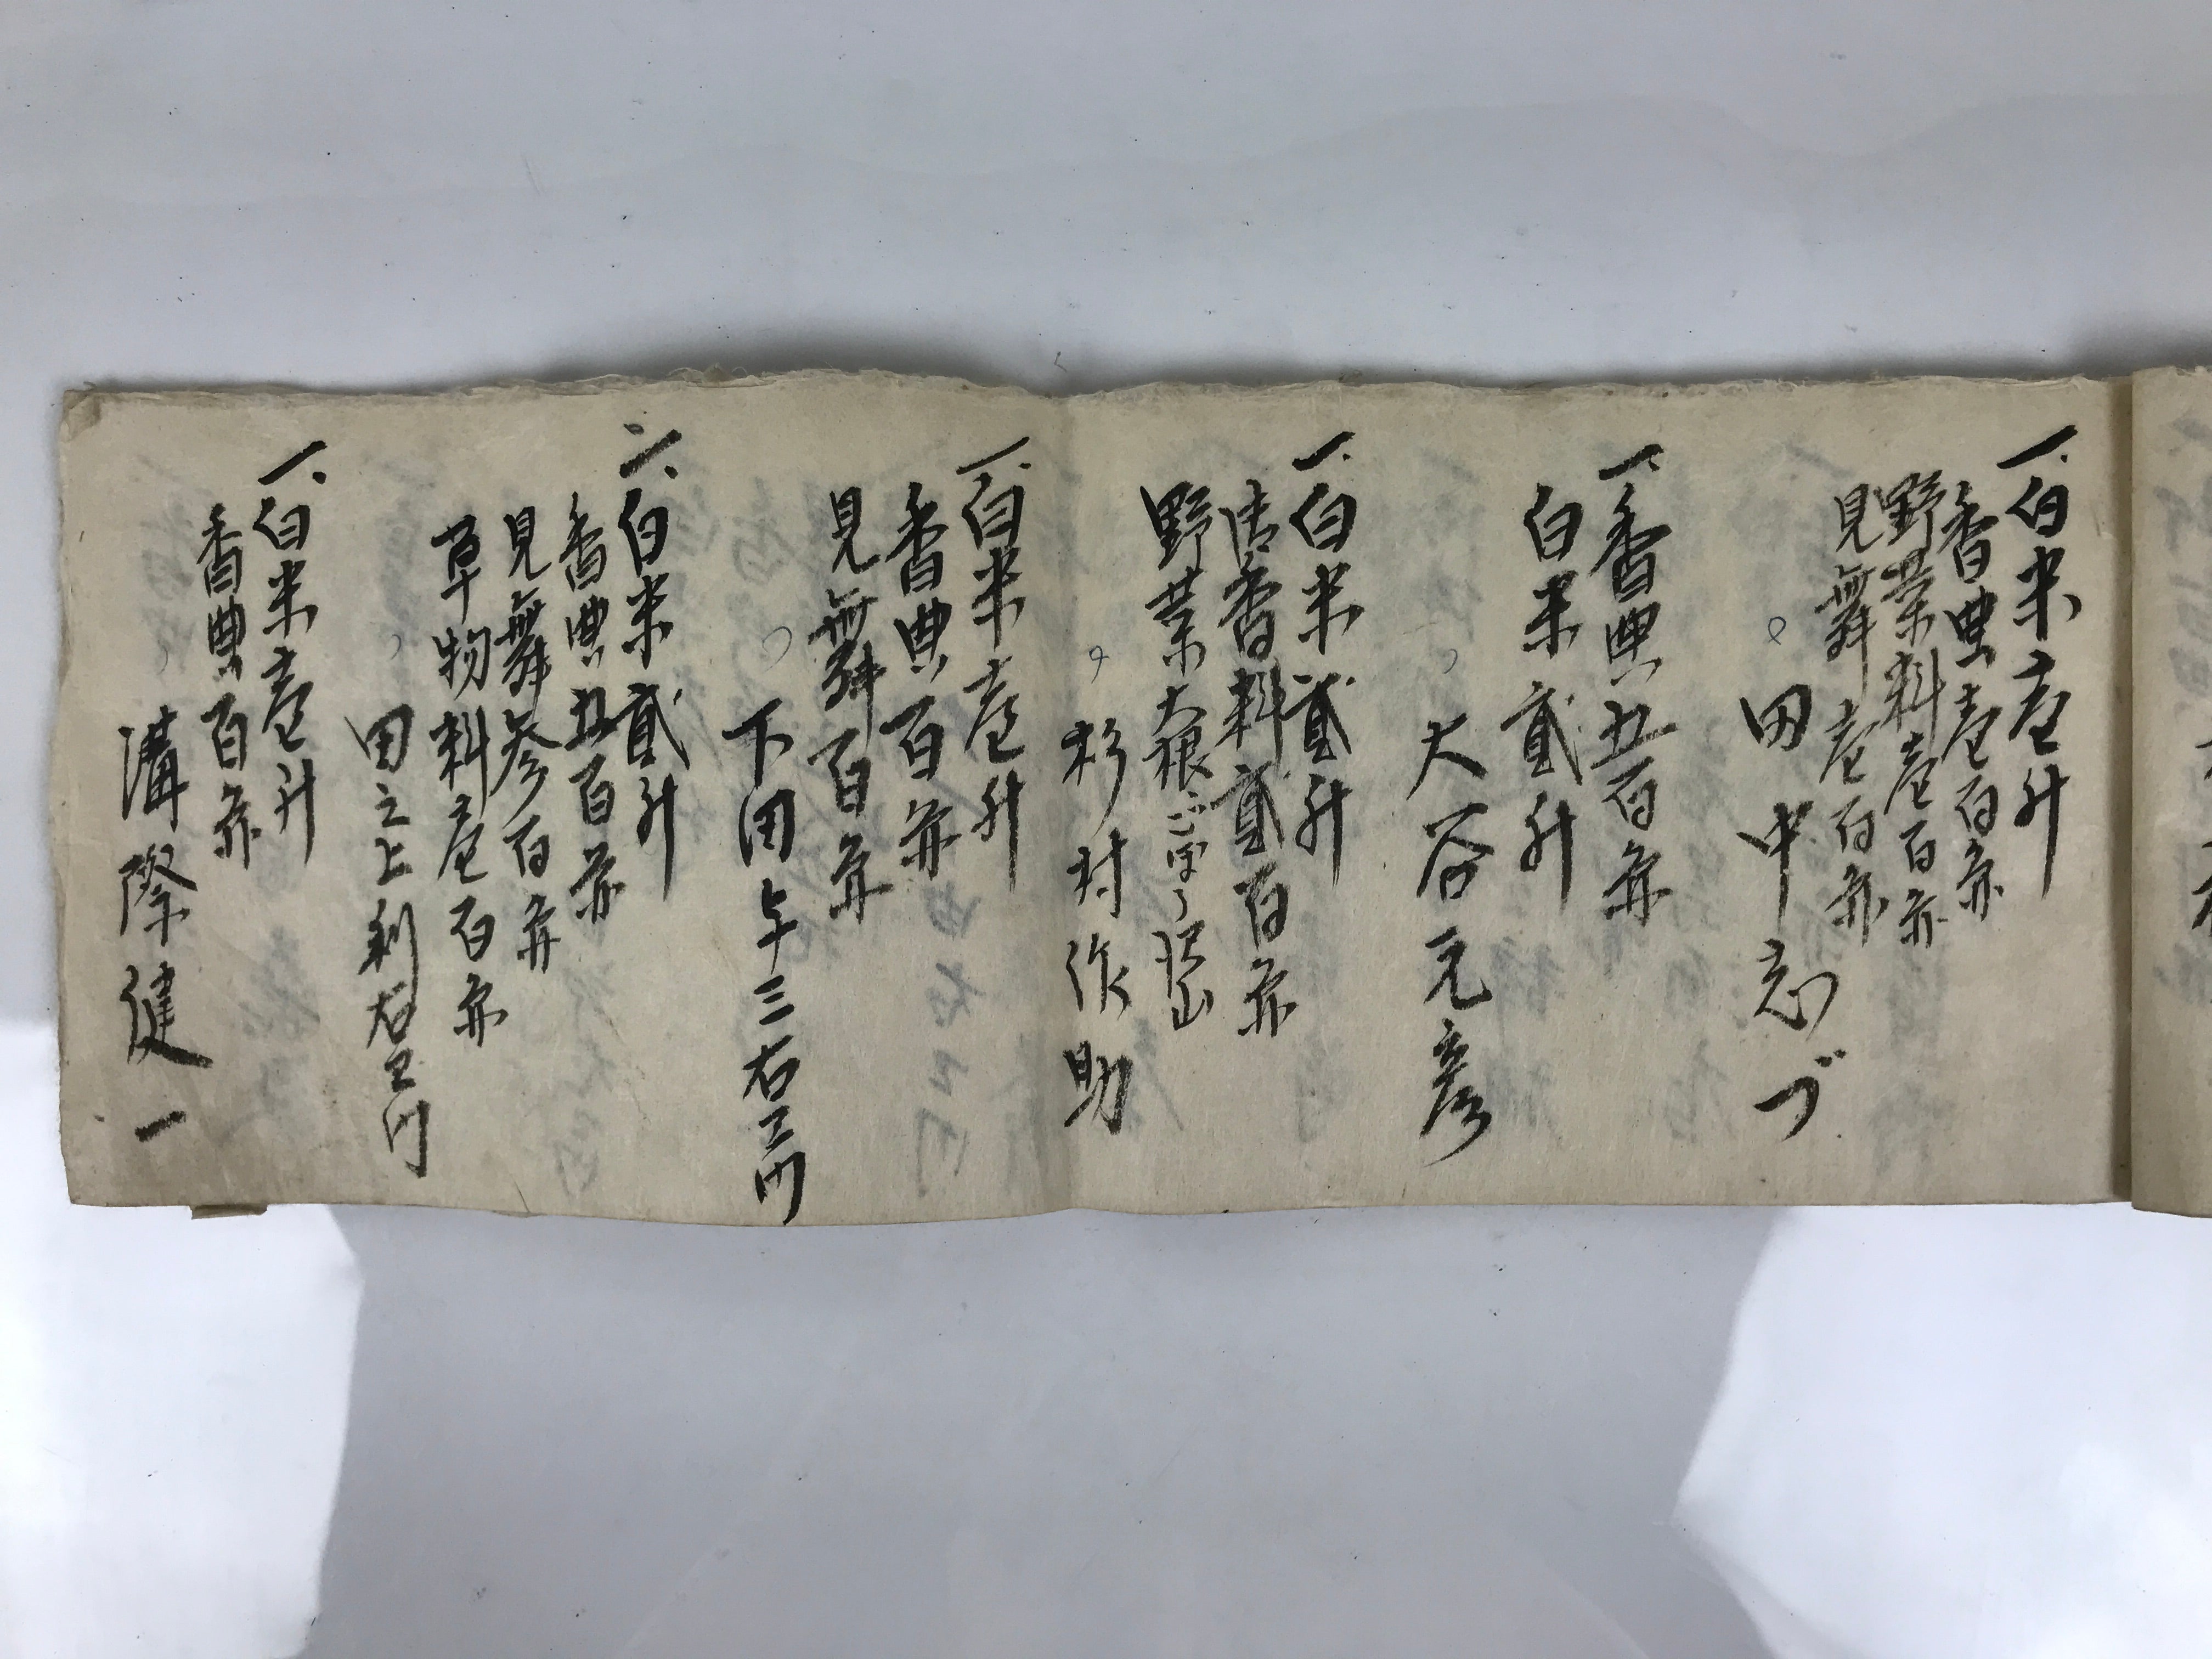 一、白米壱升
香典壱百亦
野菜料壱百亦
見舞壱百亦
田中志づ
一、香典五百亦
白米貳升
大谷元彦
一、白米貳升
香料貳百亦
野菜大根ごぼう沢山
杉村作助
一、白米壱升
香典百亦
見舞百亦
下田与三右エ門
一、白米貳升
香典五百亦
見舞参百亦
草物料壱百亦
田之上利右エ門
一、白米壱升
香典百亦
溝際健一